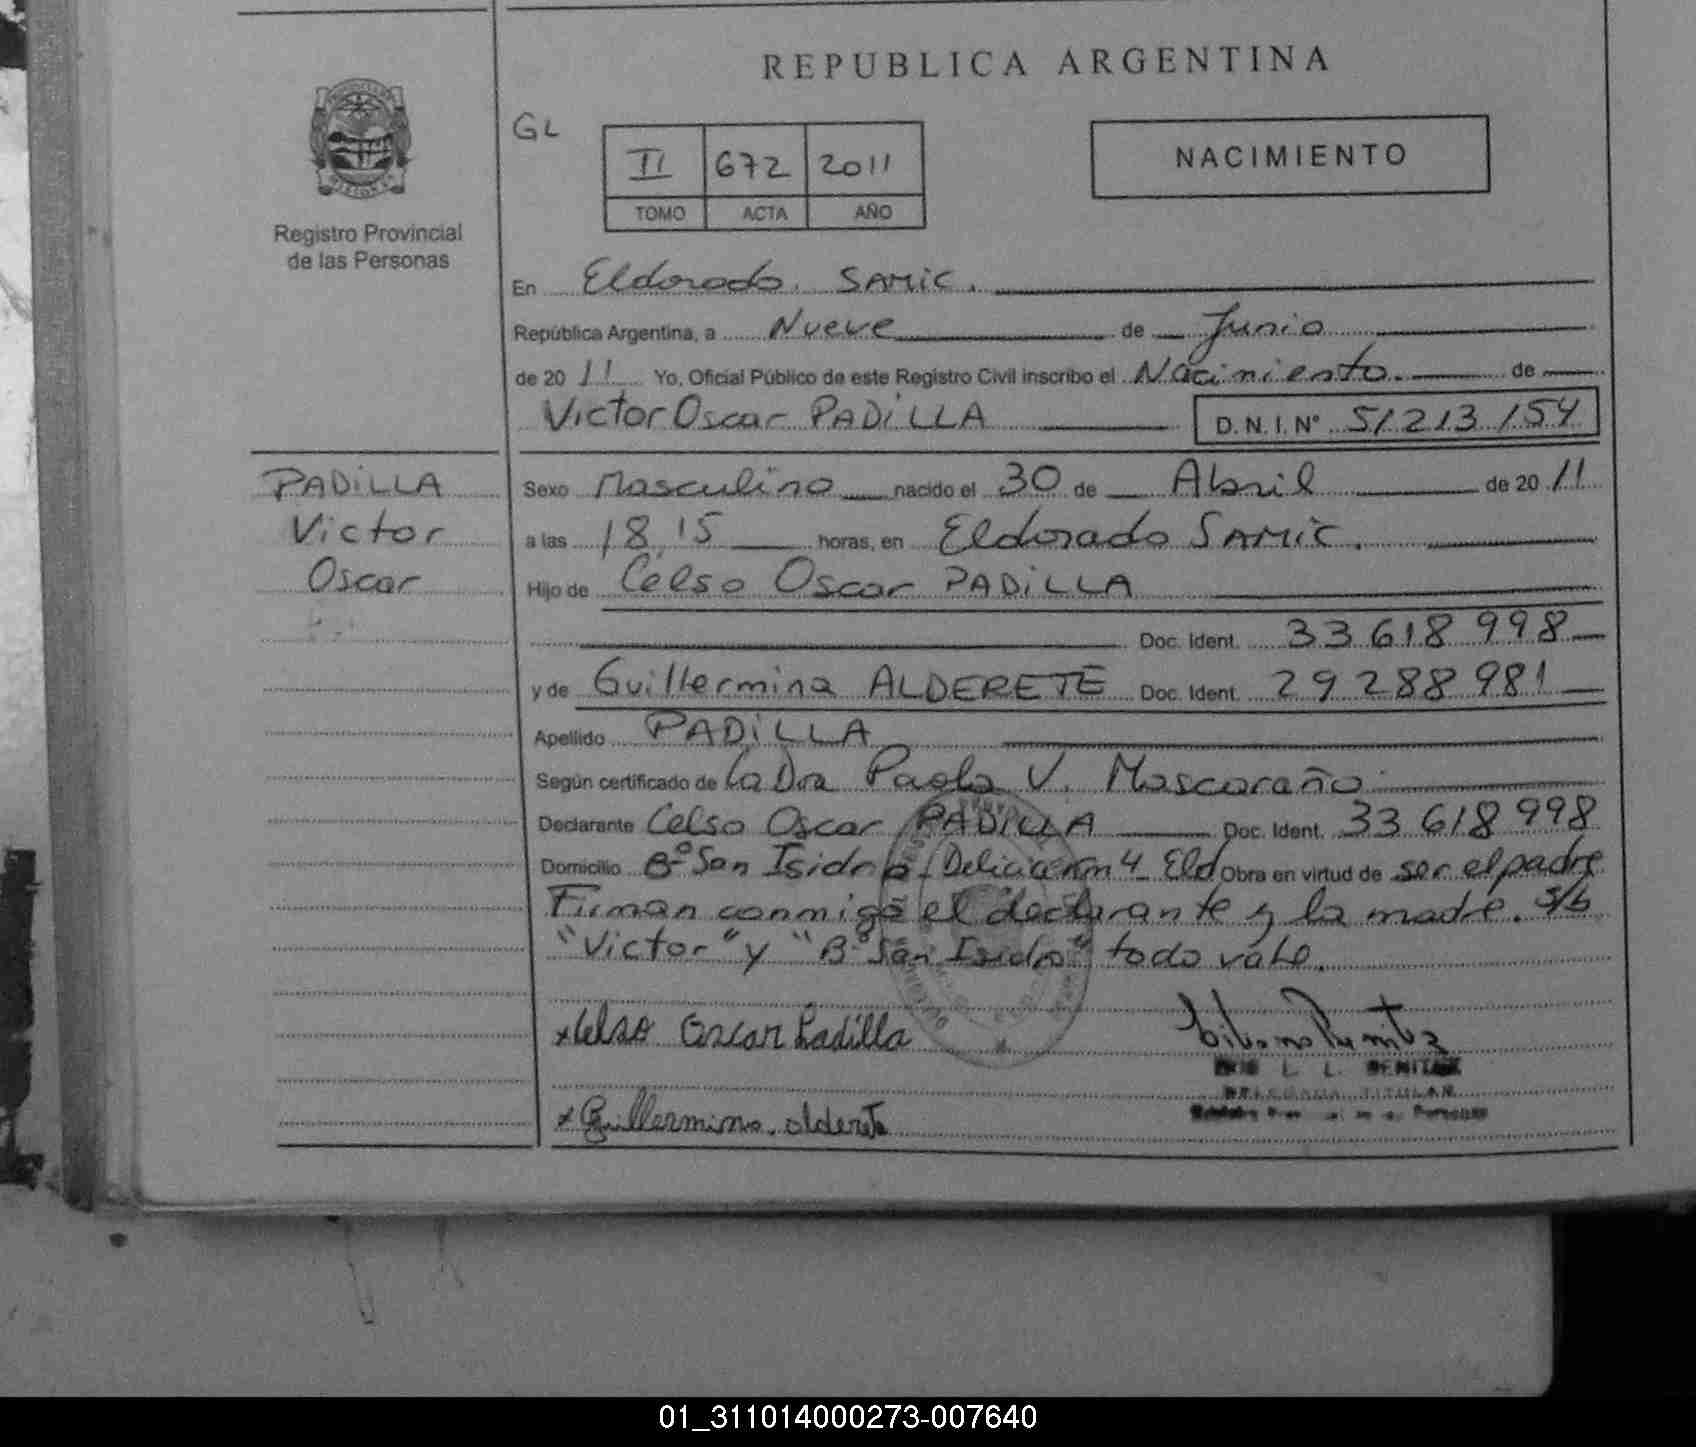 REPUBLICA ARGENTINA
GL
II 672 2011
TOMO ACTA AÑO
NACIMIENTO
Registro Provincial
de las Personas
En Eldorado. SAMIC.
República Argentina, a Nueve de Junio
de 2011 Yo, Oficial Público de este Registro Civil inscribo el Nacimiento. de
Victor Oscar PADILLA D.N.I.Nº 51213154
PADILLA
Victor
Oscar
Sexo Masculino nacido el 30 de Abril de 2011
a las 18,15 horas, en Eldorado SAMIC.
Hijo de Celso Oscar PADILLA
Doc. Ident. 33618998
y de Guillermina ALDERETE Doc. Ident. 29288981
Apellido PADILLA
Según certificado de la Dra Paola V. Mascoraño
Declarante Celso Oscar PADILLA Doc. Ident. 33618998
Domicilio Bº San Isidro Delicia Km 4 Eld Obra en virtud de ser el padre
Firman conmigo el declarante y la madre. S/b
"Victor" y "Bº San Isidro" todo vale.
x Celso Oscar Padilla
BENITEZ
DELEGADA TITULAR
x Guillermina alderete
01_311014000273-007640